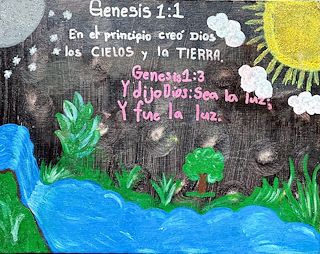 Genesis 1:1
En el principio creó Dios
los CIELOS y la TIERRA.
Genesis 1:3
Y dijo Dios: Sea la luz;
Y fue la luz.